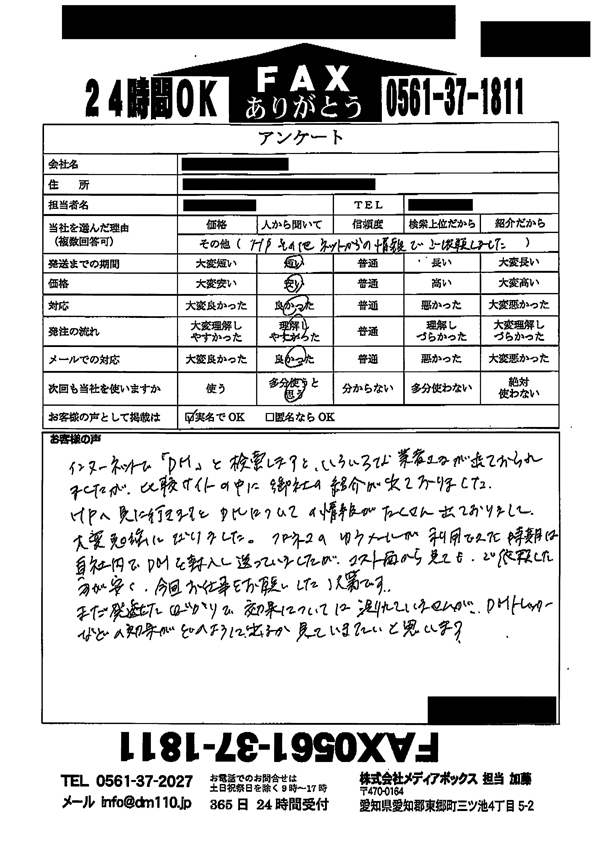 FAX
ありがとう
24時間OK
0561-37-1811
アンケート
会社名
住 所
担当者名 TEL
当社を選んだ理由
(複数回答可)
価格 人から聞いて 信頼度 検索上位だから 紹介だから
その他( HPその他ネットからの情報でご依頼しました )
発送までの期間 大変短い 短い 普通 長い 大変長い
価格 大変安い 安い 普通 高い 大変高い
対応 大変良かった 良かった 普通 悪かった 大変悪かった
発注の流れ 大変理解しやすかった 理解しやすかった 普通 理解しづらかった 大変理解しづらかった
メールでの対応 大変良かった 良かった 普通 悪かった 大変悪かった
次回も当社を使いますか 使う 多分使うと思う 分からない 多分使わない 絶対使わない
お客様の声として掲載は ☑実名でOK □匿名ならOK
お客様の声
インターネットで「DM」と検索しますと、いろいろな業者さんが出ておられ
ましたが、比較サイトの中に御社の紹介が出ておりました。
HPへ見に行きますとDMについての情報がたくさん出ておりまして
大変勉強になりました。 のゆうメールが利用できた時期は
自社内でDMを封入し送っていましたが、コスト面から見ても、ご依頼した
方が安く、今回お仕事をお願いした次第です。
まだ発送したばかりで、効果については 、DM
などの効果がどのように出るか見ていきたいと思います
FAX0561-37-1811
TEL 0561-37-2027
メール info@dm110.jp
お電話でのお問合せは
土日祝祭日を除く9時〜17時
365日 24時間受付
株式会社メディアボックス 担当 加藤
〒470-0164
愛知県愛知郡東郷町三ツ池4丁目5-2